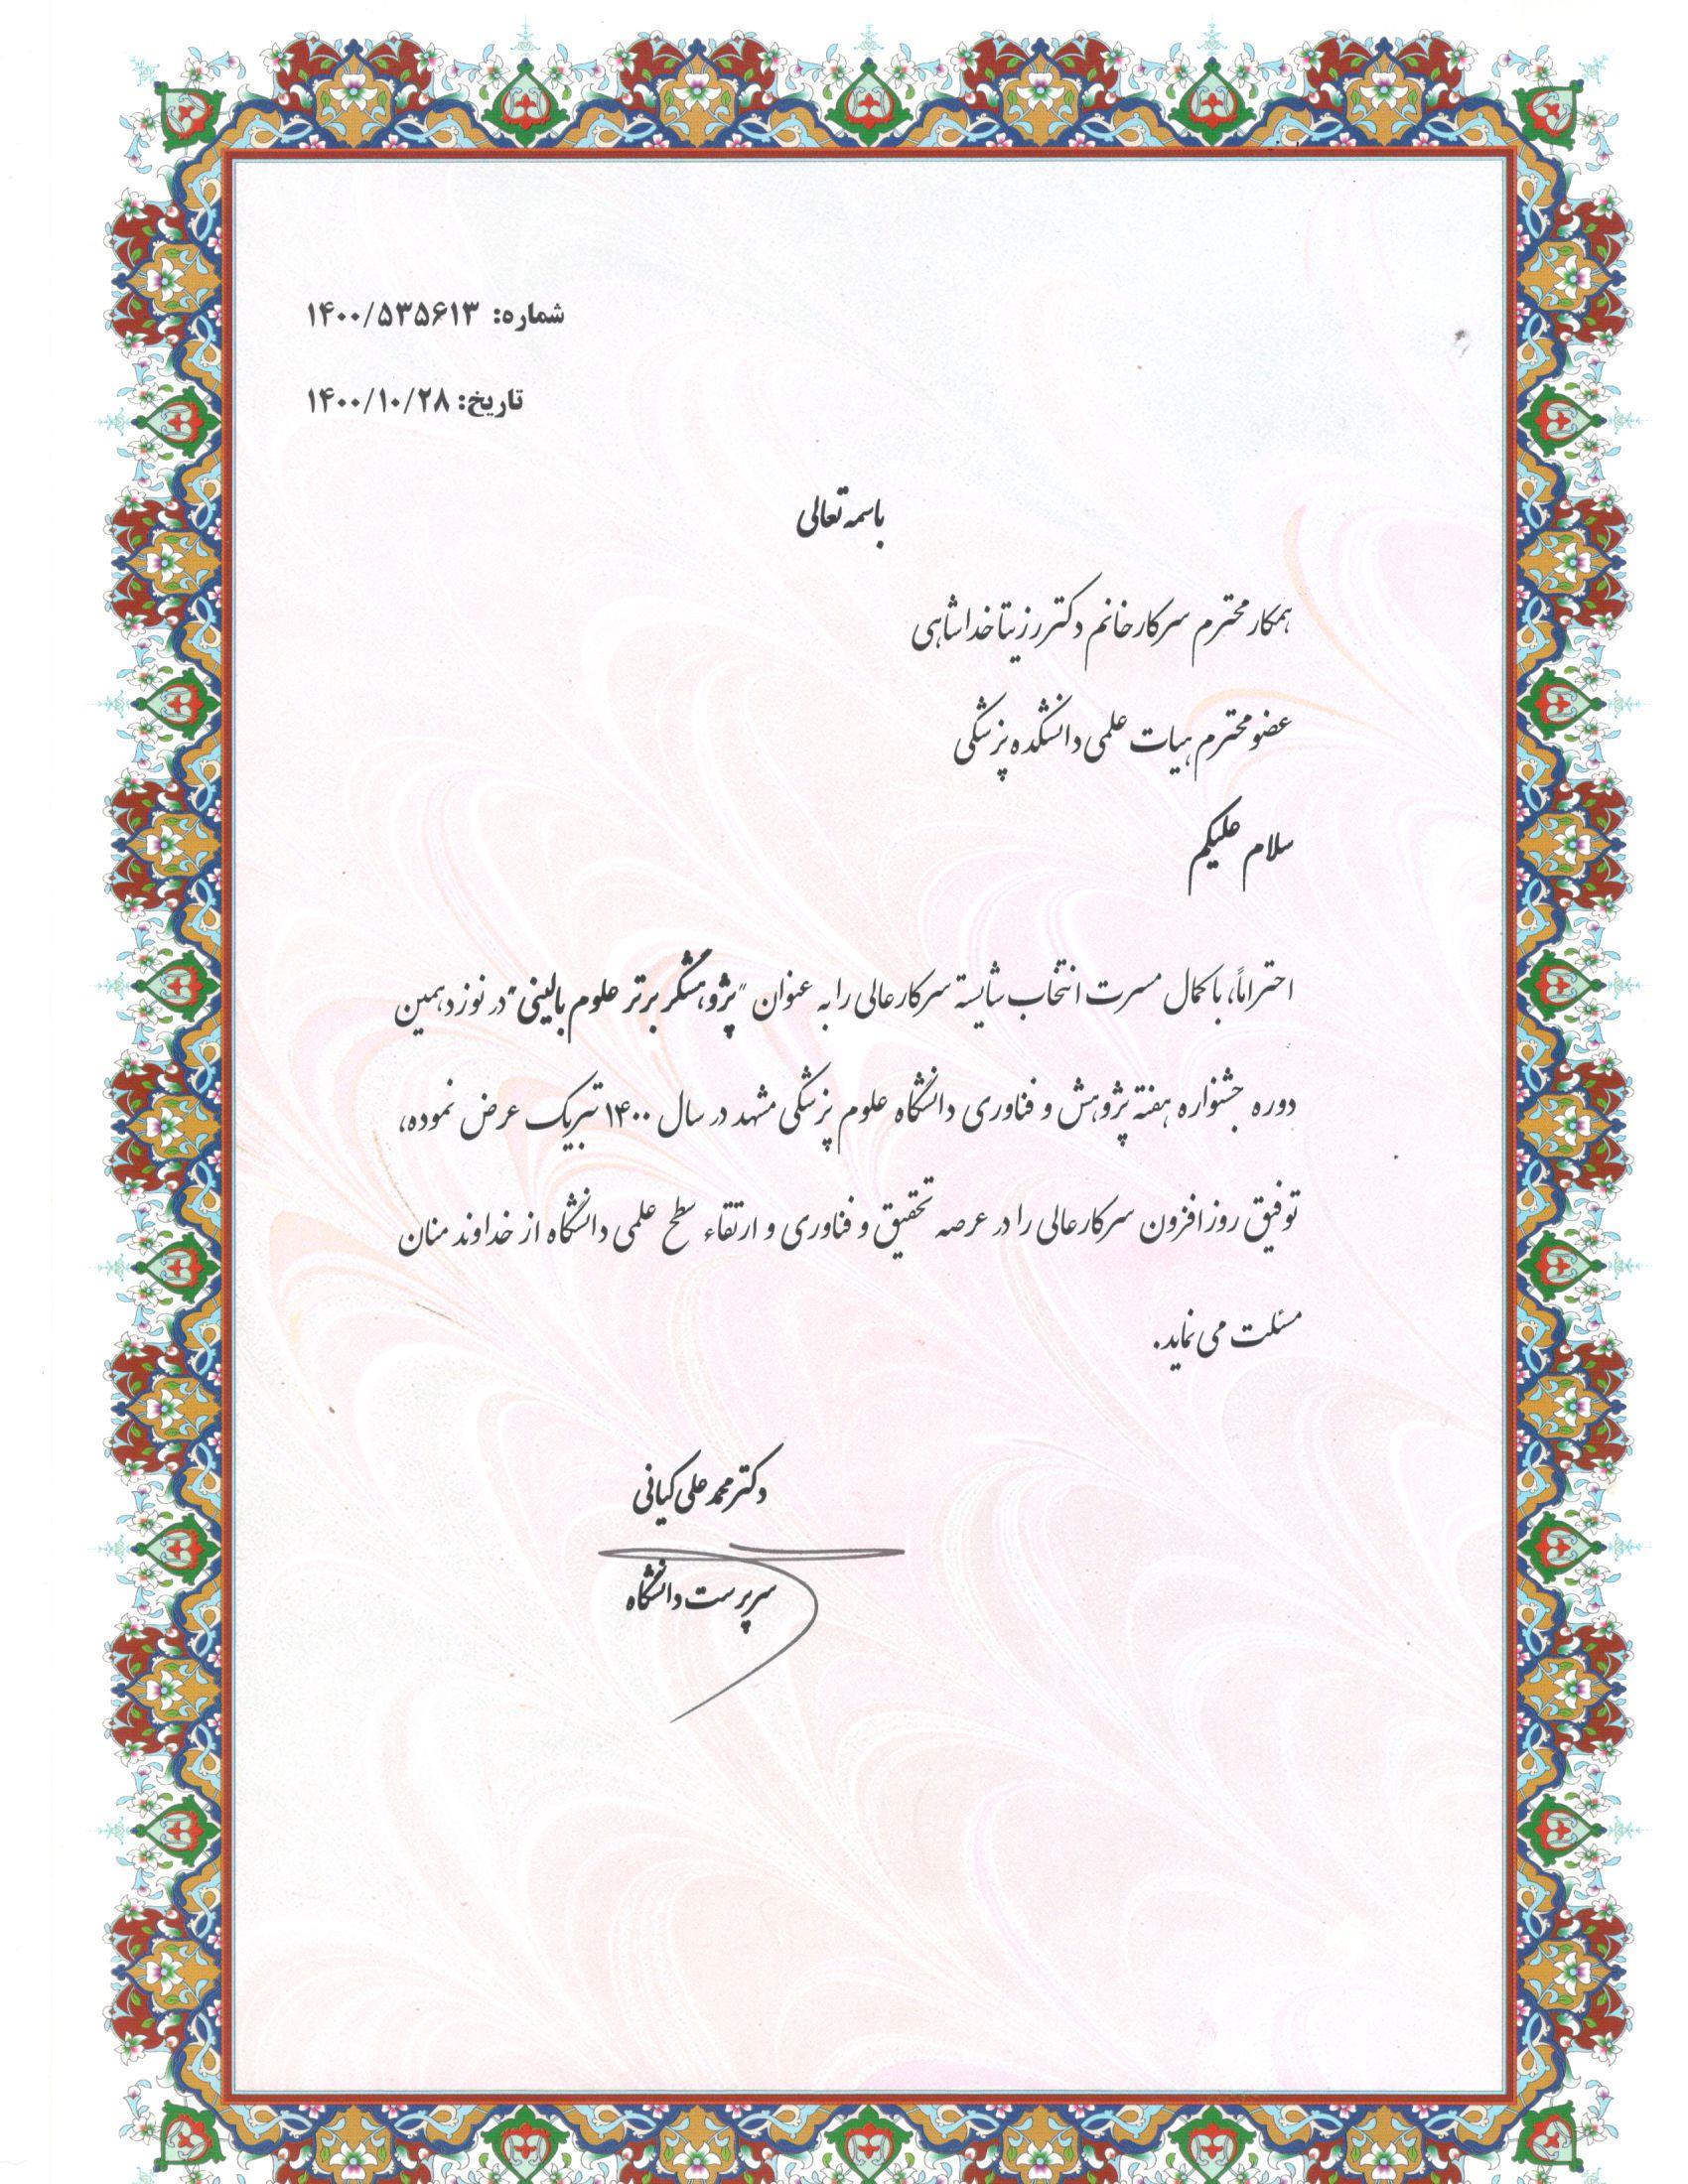 شماره: ۱۴۰۰/۵۳۵۶۱۳
تاریخ: ۱۴۰۰/۱۰/۲۸
باسمه تعالی
همکار محترم سرکار خانم دکتر رزیتا خداشاهی
عضو محترم هیات علمی دانشکده پزشکی
سلام علیکم
احتراماً، با کمال مسرت انتخاب شایسته سرکارعالی را به عنوان "پژوهشگر برتر علوم بالینی" در نوزدهمین
دوره جشنواره هفته پژوهش و فناوری دانشگاه علوم پزشکی مشهد در سال ۱۴۰۰ تبریک عرض نموده،
توفیق روزافزون سرکارعالی را در عرصه تحقیق و فناوری و ارتقاء سطح علمی دانشگاه از خداوند منان
مسئلت می نماید.
دکتر محمد علی کیانی
سرپرست دانشگاه